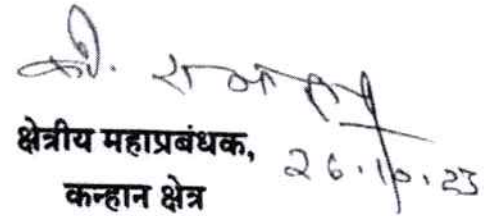 क्षेत्रीय महाप्रबंधक,
26.10.23
कन्हान क्षेत्र